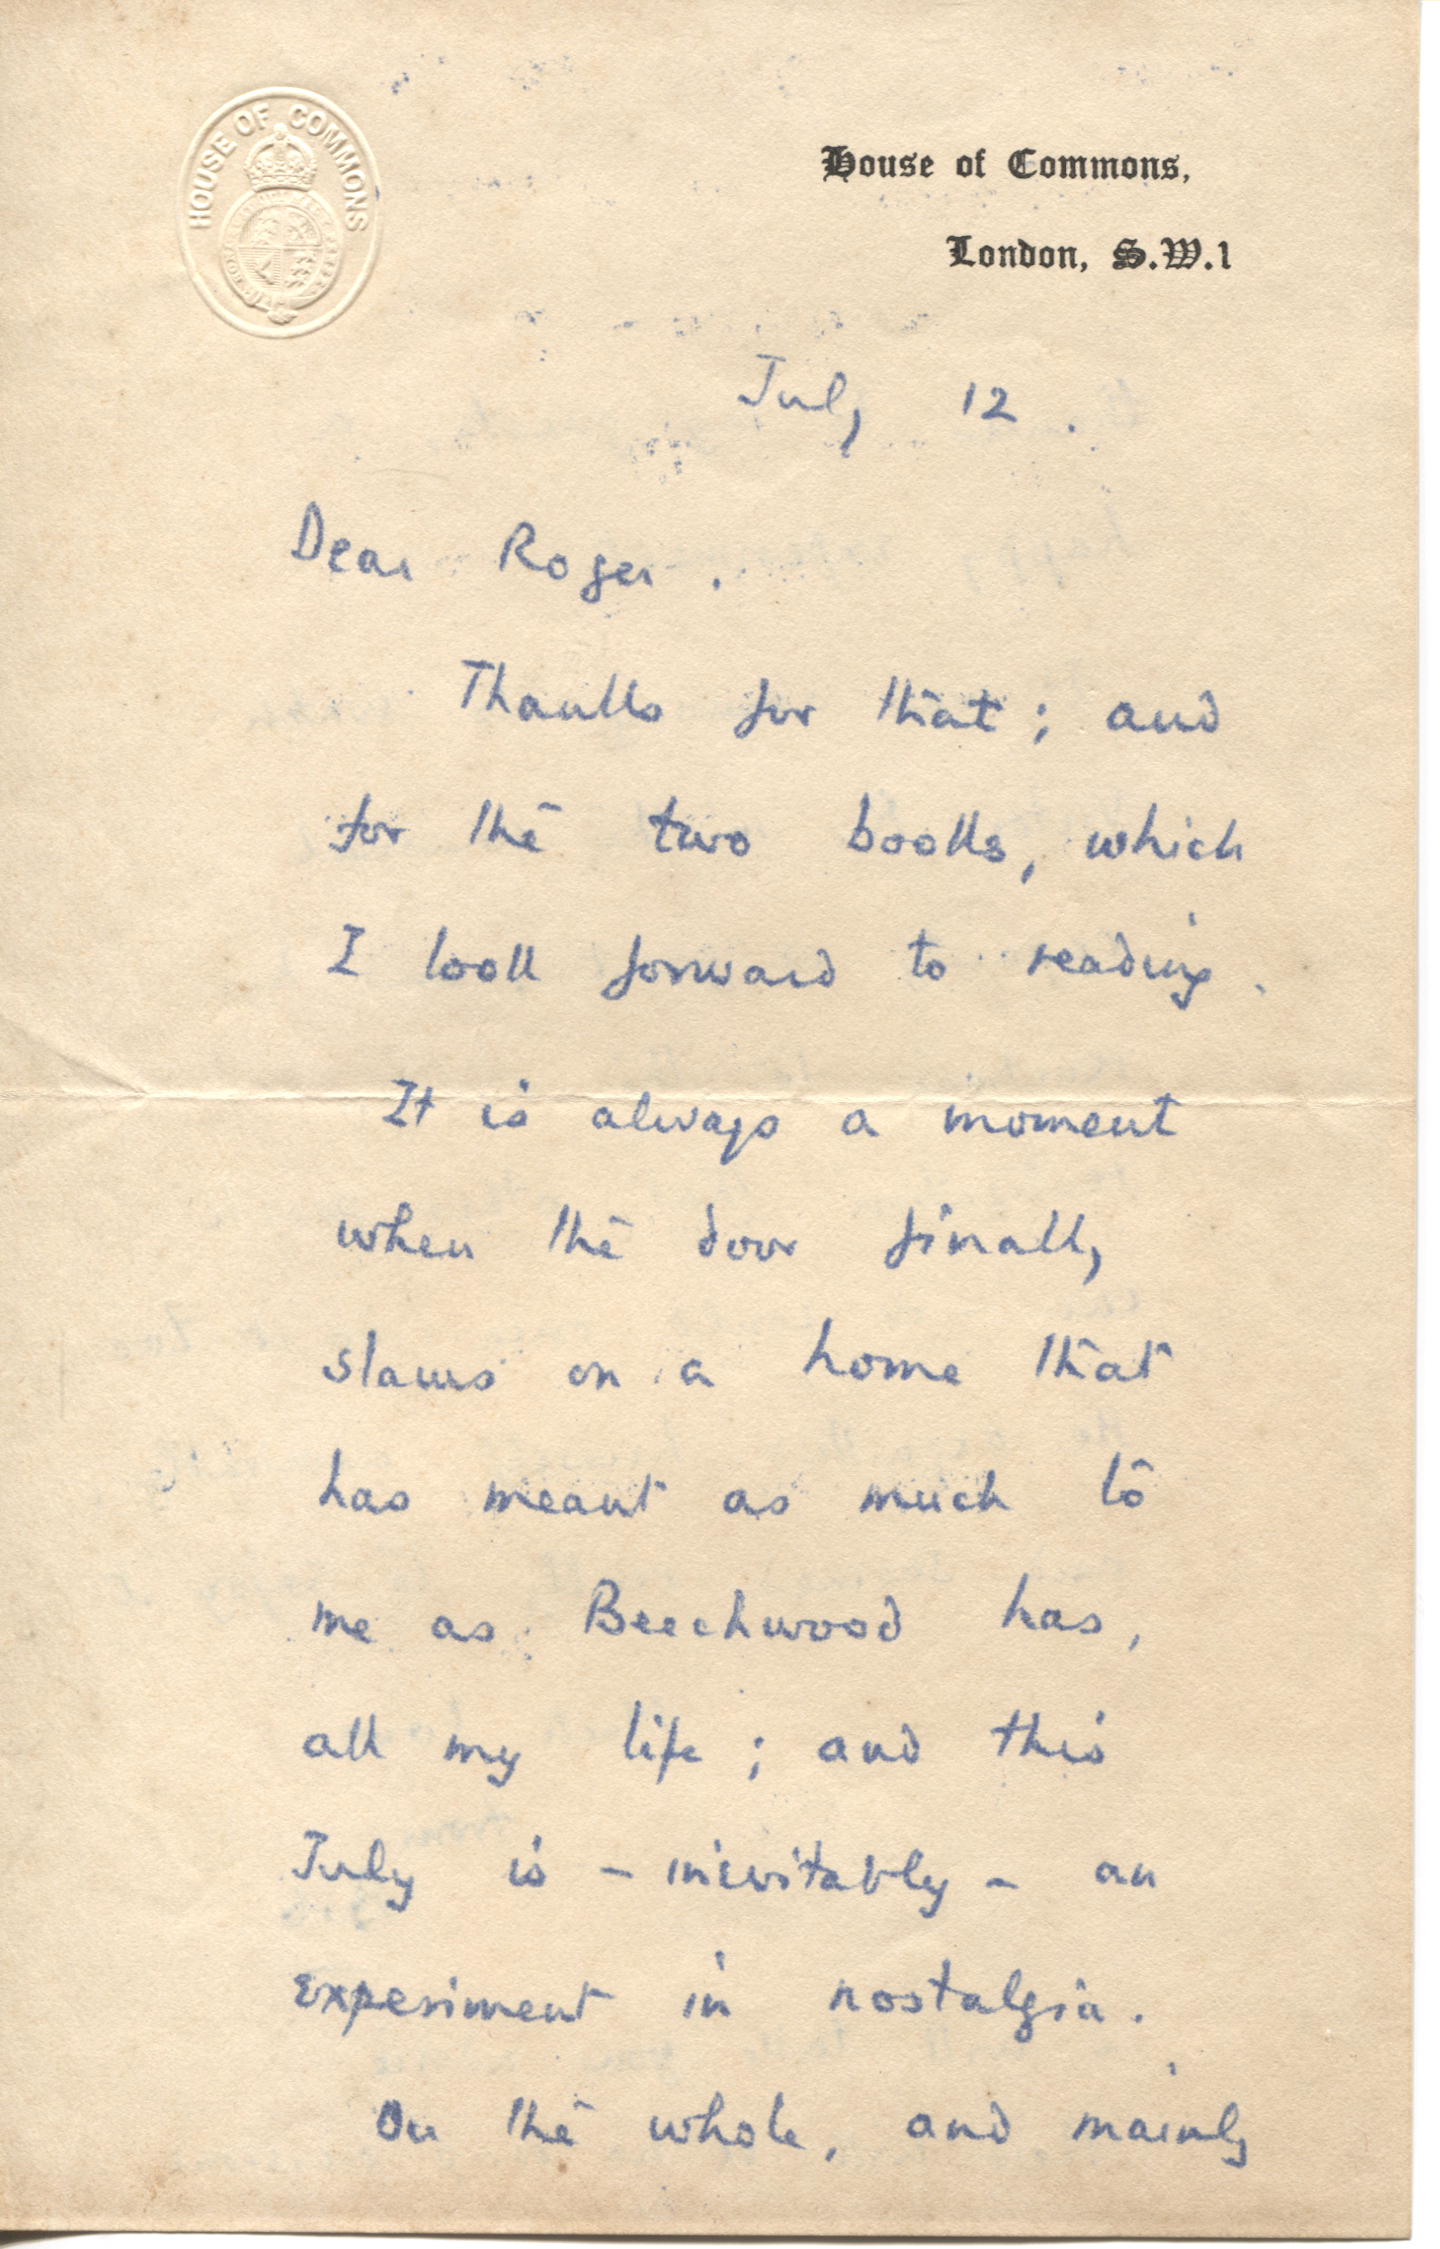 HOUSE OF COMMONS
House of Commons,
London, S.W.1
July 12.
Dear Roger.
Thanks for that; and
for the two books, which
I look forward to reading.
It is always a moment
when the door finally
slams on a home that
has meant as much to
me as Beechwood has,
all my life; and this
July is - inevitably - an
experiment in nostalgia.
On the whole, and mainly